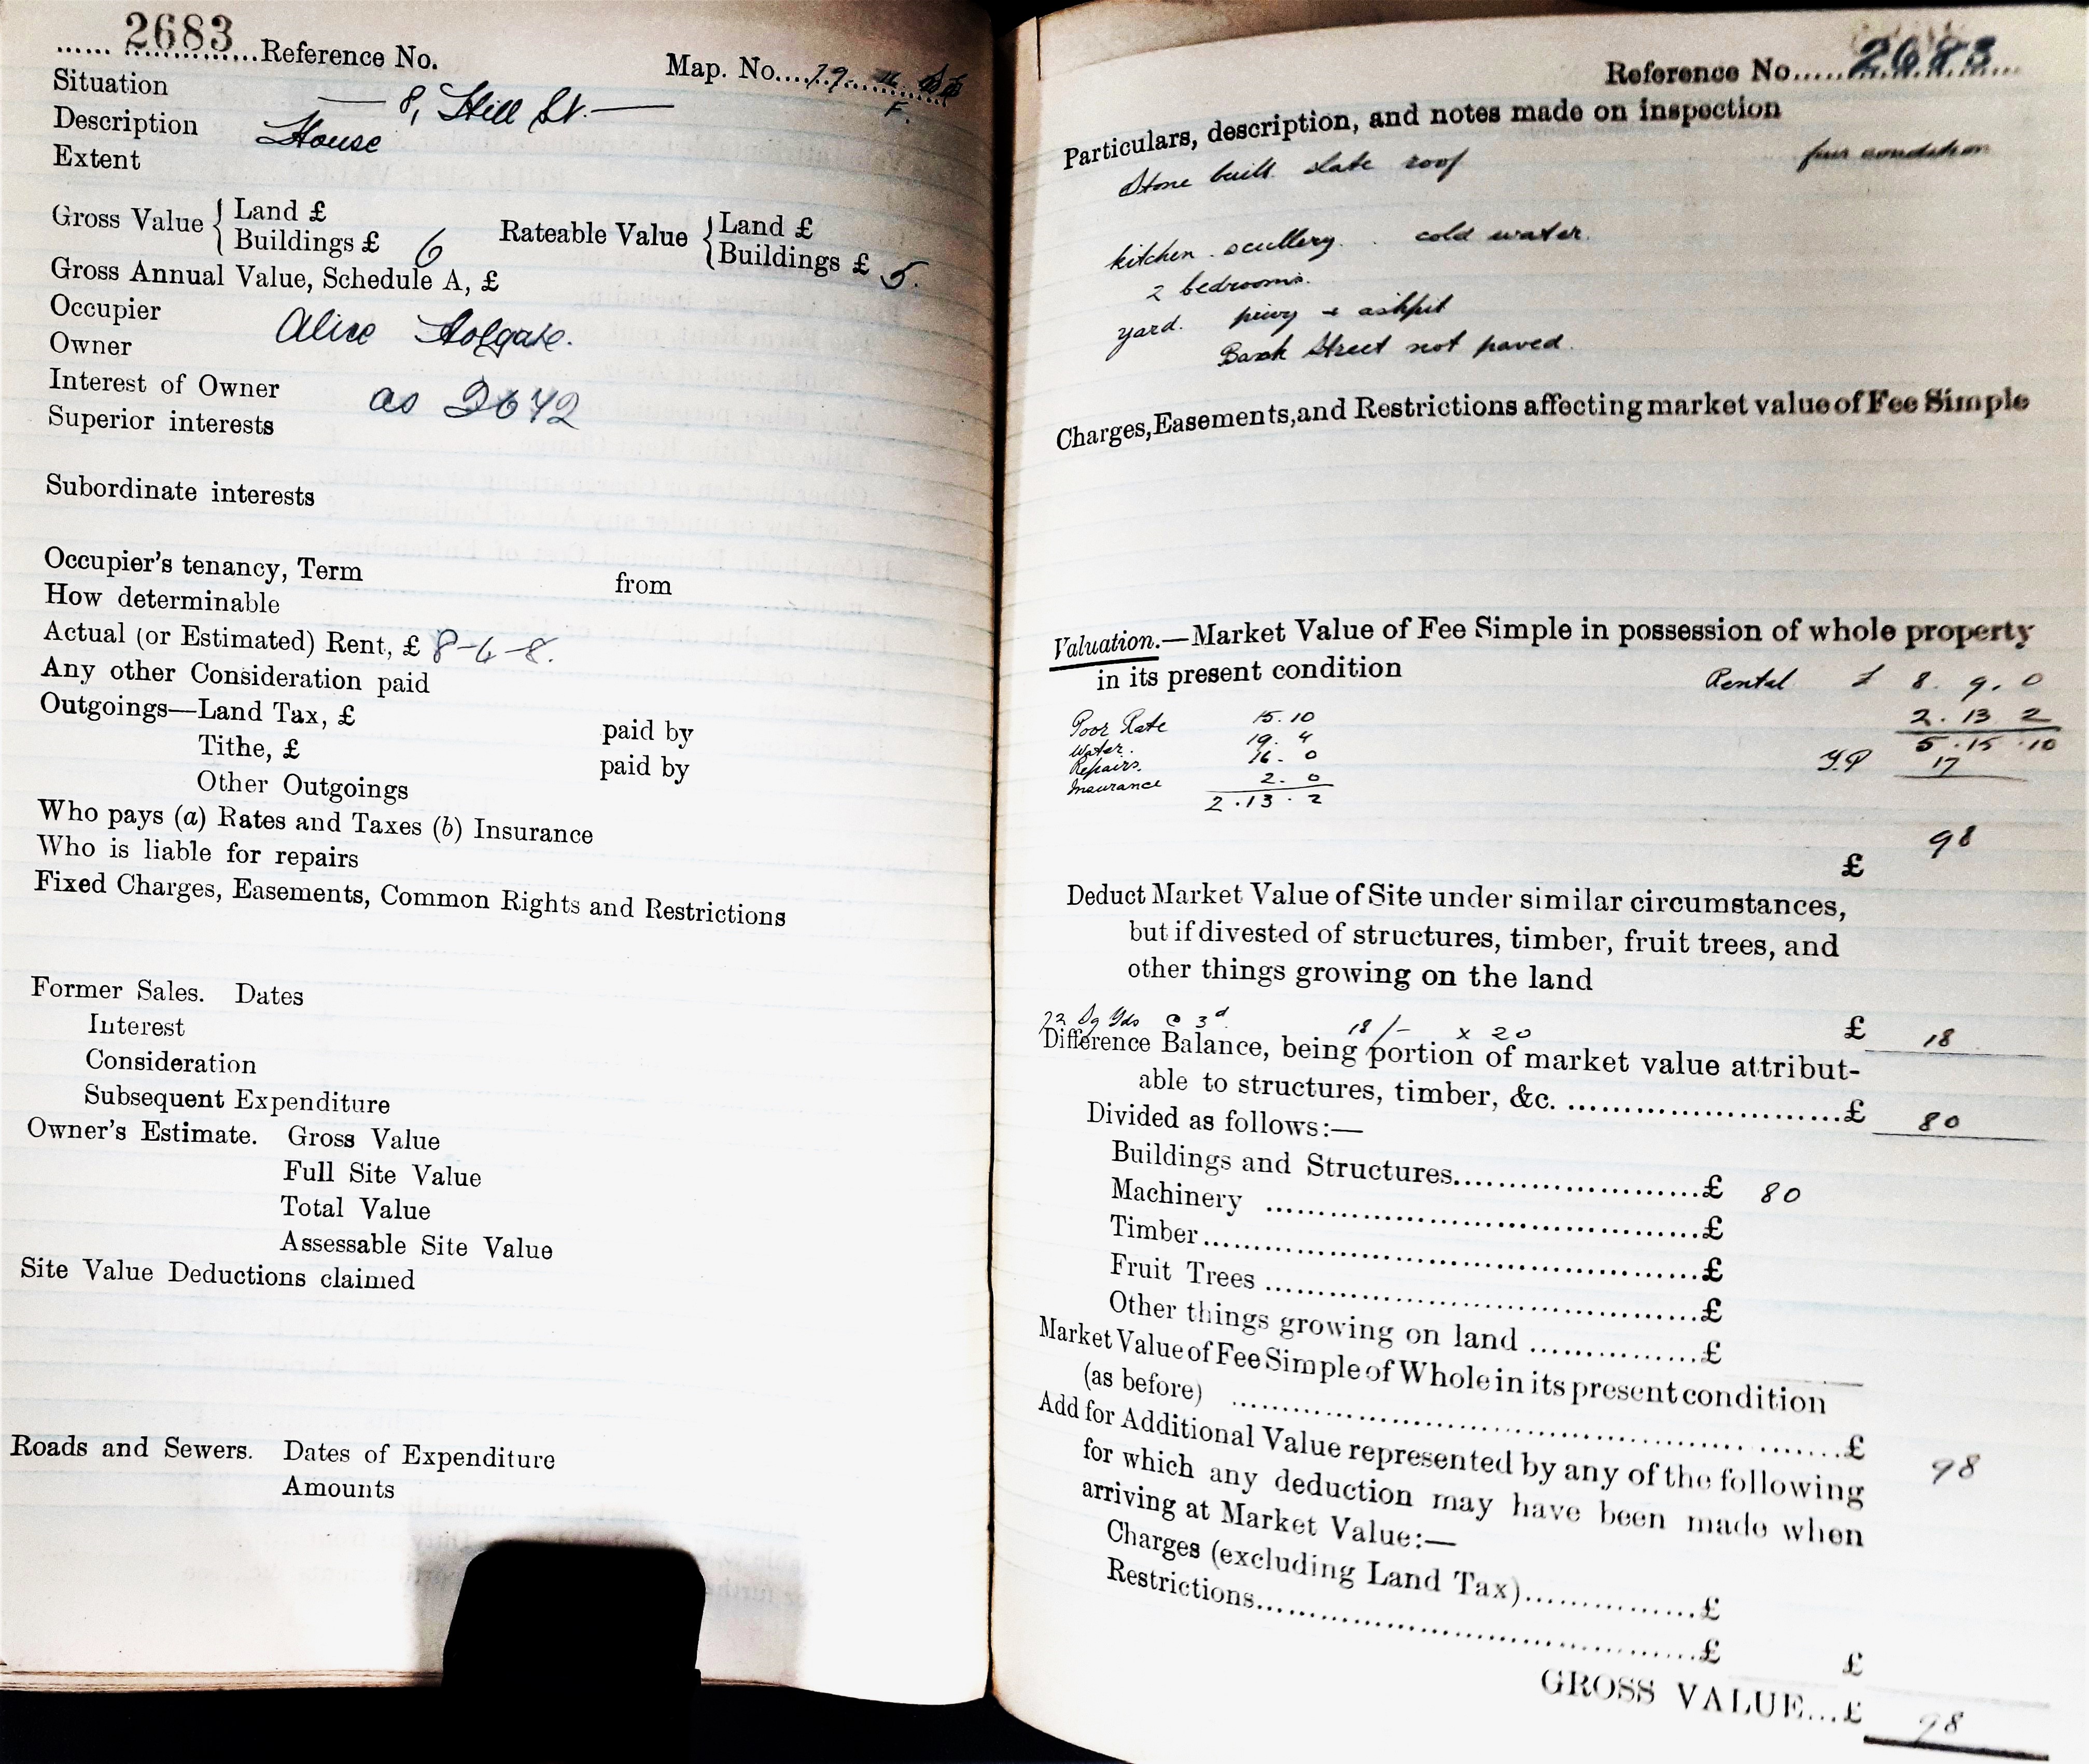 2683 Reference No.
Map. No. 79. F.
Situation — 8, Hill St. —
Description House
Extent
Gross Value { Land £
Buildings £ 6
Rateable Value { Land £
Buildings £ 5.
Gross Annual Value, Schedule A, £
Occupier Alice Holgate.
Owner
Interest of Owner as 2642
Superior interests
Subordinate interests
Occupier's tenancy, Term from
How determinable
Actual (or Estimated) Rent, £ 8-4-8.
Any other Consideration paid
Outgoings—Land Tax, £ paid by
Tithe, £ paid by
Other Outgoings
Who pays (a) Rates and Taxes (b) Insurance
Who is liable for repairs
Fixed Charges, Easements, Common Rights and Restrictions
Former Sales. Dates
Interest
Consideration
Subsequent Expenditure
Owner's Estimate. Gross Value
Full Site Value
Total Value
Assessable Site Value
Site Value Deductions claimed
Roads and Sewers. Dates of Expenditure
Amounts
Reference No. 2683
Particulars, description, and notes made on inspection
Stone built slate roof fair condition
kitchen . scullery. cold water.
2 bedrooms.
yard. privy & ashpit
Back Street not paved.
Charges, Easements, and Restrictions affecting market value of Fee Simple
Valuation.—Market Value of Fee Simple in possession of whole property
in its present condition
Rental £ 8. 9. 0
2. 13 2
5. 15. 10
Y.P 17
Poor Rate 15. 10
Water. 19. 4
Repairs. 16. 0
Insurance 2. 0
2. 13. 2
£ 98
Deduct Market Value of Site under similar circumstances,
but if divested of structures, timber, fruit trees, and
other things growing on the land
72 Sq Yds @ 3d 18/- x 20 £ 18
Difference Balance, being portion of market value attribut-
able to structures, timber, &c. £ 80
Divided as follows:—
Buildings and Structures £ 80
Machinery £
Timber £
Fruit Trees £
Other things growing on land £
Market Value of Fee Simple of Whole in its present condition
(as before) £ 98
Add for Additional Value represented by any of the following
for which any deduction may have been made when
arriving at Market Value:—
Charges (excluding Land Tax) £
Restrictions £ £
GROSS VALUE...£ 98